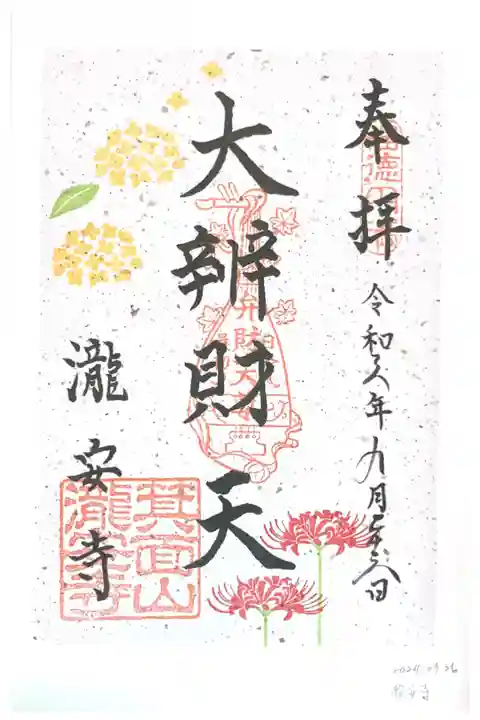 奉拝
令和六年九月二十六日
大辨財天
弁財天
瀧安寺
箕面山
瀧安寺
2024.09.26
瀧安寺